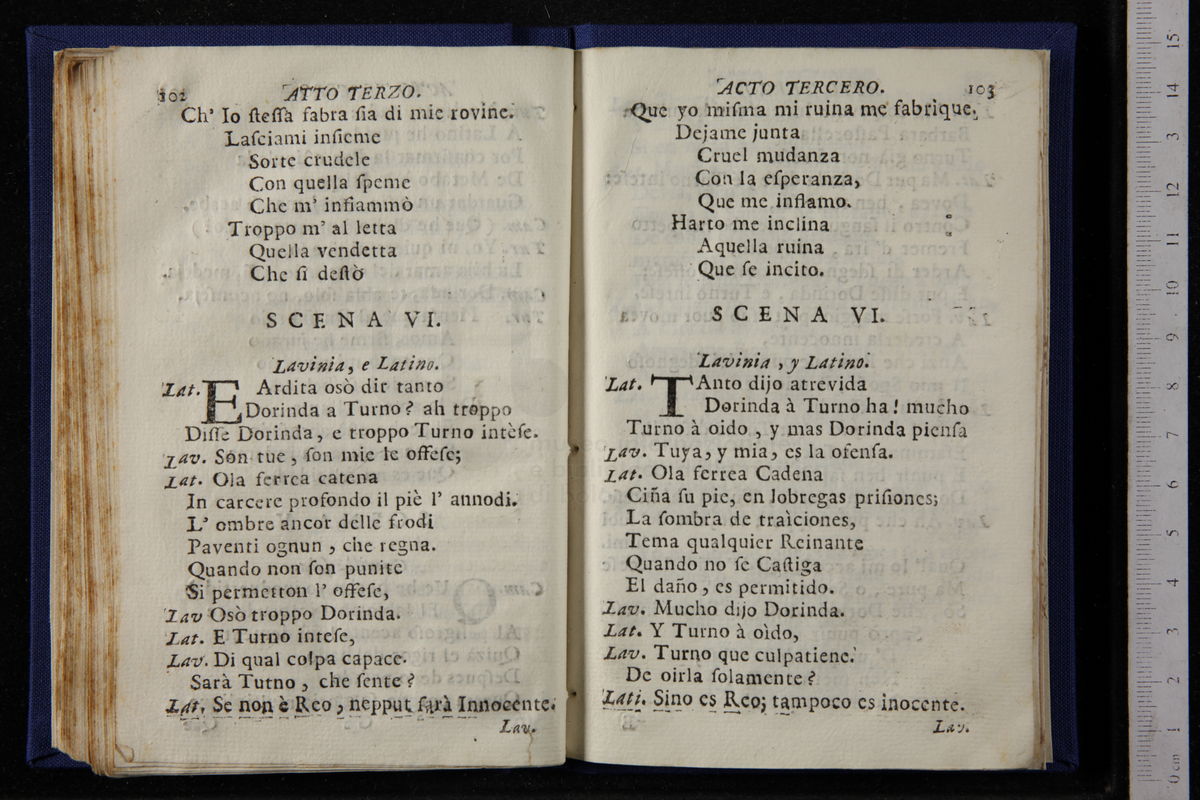 102 ATTO TERZO.
Ch' Io ſteſſa fabra ſia di mie rovine.
Laſciami inſieme
Sorte crudele
Con quella ſpeme
Che m' infiammò
Troppo m' al letta
Quella vendetta
Che ſi deſtò
SCENA VI.
Lavinia, e Latino.
Lat. E Ardita osò dir tanto
Dorinda a Turno? ah troppo
Diſſe Dorinda, e troppo Turno intèſe.
Lav. Son tue, ſon mie le offeſe;
Lat. Ola ferrea catena
In carcere profondo il piè l' annodi.
L' ombre ancor delle frodi
Paventi ognun, che regna.
Quando non ſon punite
Si permetton l' offeſe,
Lav Osò troppo Dorinda.
Lat. E Turno inteſe,
Lav. Di qual colpa capace.
Sarà Turno, che ſente?
Lat. Se non è Reo, neppur ſarà Innocente.
Lav.
ACTO TERCERO. 103
Que yo miſma mi ruina me fabrique.
Dejame junta
Cruel mudanza
Con la eſperanza,
Que me inflamo.
Harto me inclina
Aquella ruina
Que ſe incito.
SCENA VI.
Lavinia, y Latino.
Lat. TAnto dijo atrevida
Dorinda à Turno ha! mucho
Turno à oido, y mas Dorinda pienſa
Lav. Tuya, y mia, es la ofenſa.
Lat. Ola ferrea Cadena
Ciña ſu pie, en lobregas priſiones;
La ſombra de traìciones,
Tema qualquier Reinante
Quando no ſe Caſtiga
El daño, es permitido.
Lav. Mucho dijo Dorinda.
Lat. Y Turno à oìdo,
Lav. Turno que culpatiene.
De oirla ſolamente?
Lati. Sino es Reo; tampoco es inocente.
Lav.
0 cm 1 2 3 4 5 6 7 8 9 10 11 12 13 14 15